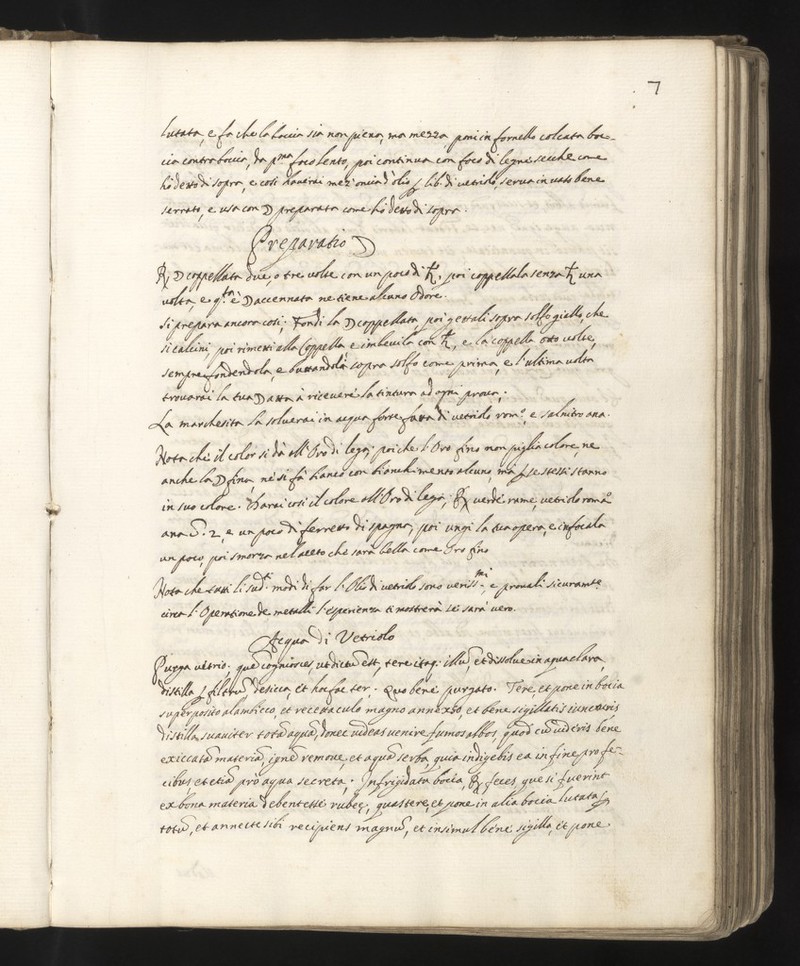 7
lutata, e fa che la boccia sia non piena, ma mezza, poni in fornello colcata boc-
cia contra boccia, da p.ma foco lento, poi continua con foco di legni secche come
hò detto di sopra, e così haverai mez'oncia d'olio p lib. di vetriolo, serva in vaso bene
serrato, e usa con ☽ preparata come hò detto di sopra.
Preparatio ☽
℞ ☽ coppellata due, o tre volte con un poco di ♄, poi coppellala senza ♄ una
volta, e q.ta è ☽ accennata ne tiene alcuno odore.
Si prepara ancora così; Fondi la ☽ coppellata, poi gettali sopra solfo giallo, che
si calcini, poi rimetti alla Coppella e imbevila con ♄, e la coppella otto volte,
sempre fondendola, e buttandola sopra solfo come prima, e l'ultima volta
trovarai la tua ☽ atta à ricevere la tintura ad ogni prova.
La marchesita la solverai in acqua forte fatta di vetriolo rom.o, e salnitro ana.
Nota che il color si dà all'Oro di lega, poiche l'Oro fino non piglia colore, ne
anche la ☽ fina, nè si fà bianco con bianchimento alcuno, ma p se stessi stanno
in suo colore. Darai così il colore all'Oro di lega, ℞ verde rame, vetriolo roma.o
ana ℥. 2, e un poco di ferretto di spagna, poi ungi la tua opera, e infocala
un poco, poi smorza nel aceto che sarà bella come Oro fino
Nota che tutti li sud.ti modi di far l'Olio di vetriolo sono veriss.mi, e provali sicuram.te
circa l'Operatione de metalli l'esperienza ti mostrerà se sarà vero.
Acqua di Vetriolo
Purga vitrio. quē cognoscis, ut dictū est, tere itaq. illū, et dissolve in aqua clara,
distilla p filtrū, desicca, et hoc fac ter. Quo bene purgato. Tere, et pone in bocia
superposito alambicco, et receptaculo magno annexo, et bene sigillatis iuncturis
distilla suaviter totā aquā, donec videas venire fumos albos, quod cū videris bene
exiccatā materiā, ignē remove, et aquā serba, quia indigebis ea in fine pro fe-
cibus, et etiā pro aqua secreta. Infrigidata bocia, ℞ feces, que si fuerint
ex bona materia debent esse rubeę, quas tere, et pone in alia bocia lutata p
totū, et annecte sibi recipiens magnū, et insimul bene sigilla, et pone